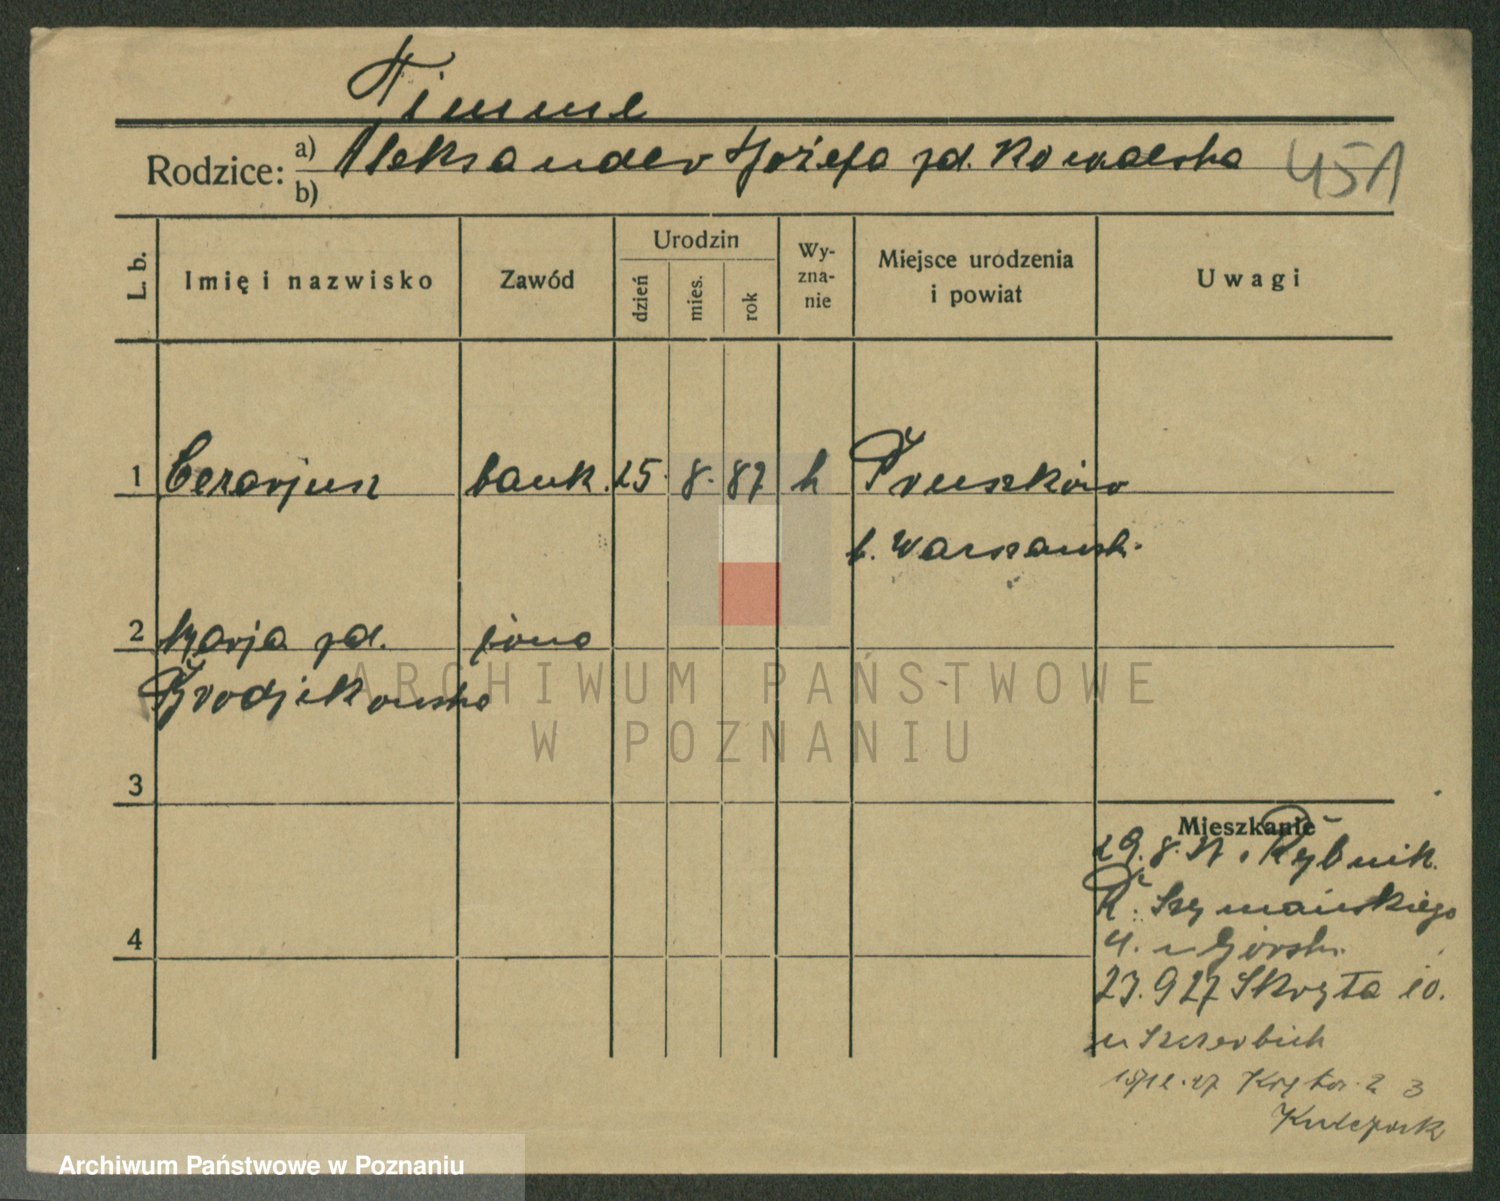 Timme
Rodzice: a) Aleksander Józefa zd. Kowalska 451
b)
L. b. Imię i nazwisko Zawód Urodzin dzień mies. rok Wyznanie Miejsce urodzenia i powiat Uwagi
1 Cezarjusz bank. 25. 8. 87 k Pruszków
p. Warszawski.
2 Marja zd. żona
Brodzikowska
3
Mieszkanie
29.8.27. Rybnik.
R. Szymańskiego
4. u Górski.
4
23.927 Skryta 10.
u Szczerbich
15/12.27 Kręta 23
Kulczak
ARCHIWUM PAŃSTWOWE
W POZNANIU
Archiwum Państwowe w Poznaniu